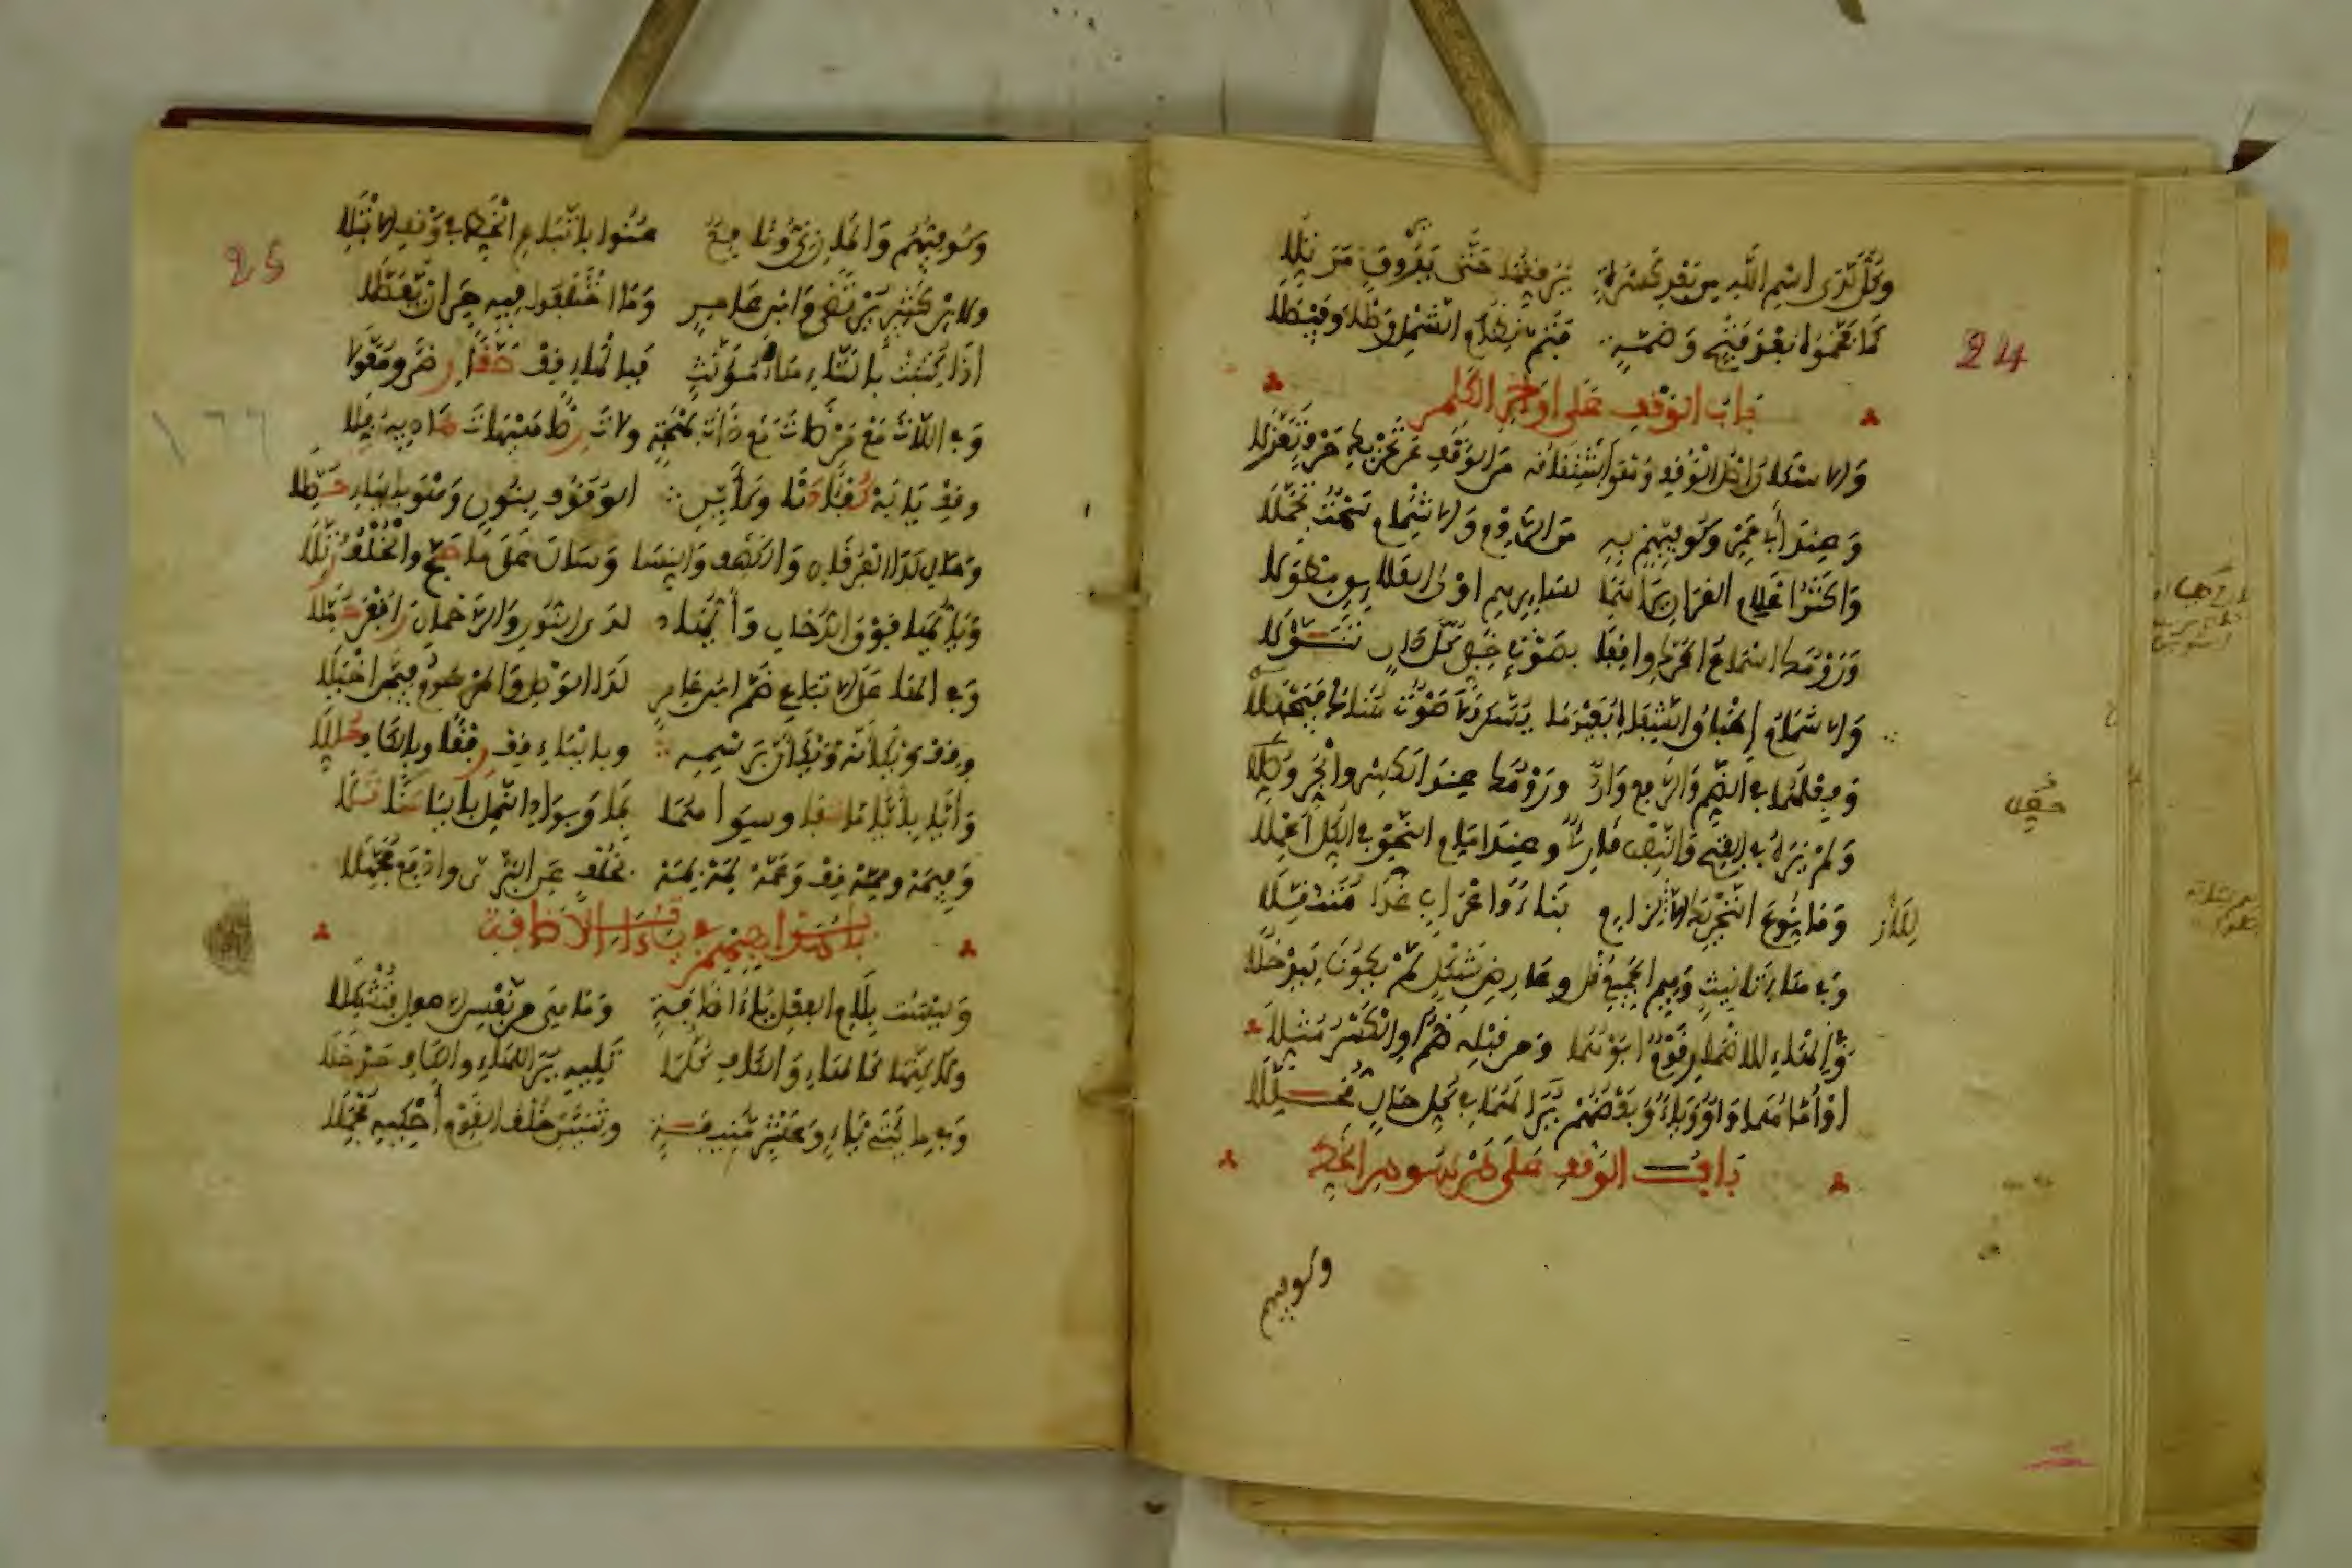 24
وكل لدى اسم الله من بعد كسرة يرققها حتى يروق مرتلا
كما فخموه بعد فتح وضمة فتم نظام الشمل وصلا وفيصلا
باب الوقف على اواخر الكلم
والاسكان اصل الوقف وهو اشتقاقه من الوقف عن تحريك حرف تعزلا
وعند ابي عمرو وكوفيهم به من الروم والاشمام سمت تجملا
واكثر اعلام القران يراهما لسائرهم اولى العلائق مطولا
ورومك اسماع المحرك واقفا بصوت خفي كل دان تنولا
والاشمام اطباق الشفاه بعيد ما يسكن لا صوت هناك فيصحلا
وفعلهما في الضم والرفع وارد ورومك عند الكسر والجر وصلا
ولم يره في الفتح والنصب قارئ وعند امام النحو في الكل اعملا
وما نوع التحريك الا للازم بناء واعراب غدا متنقلا
وفي هاء تانيث وميم الجميع قل وعارض شكل لم يكونا ليدخلا
وفي الهاء للاضمار قوم ابوهما ومن قبله ضم او الكسر مثلا
او اماهما واو وياء وبعضهم يرى لهما في كل حال محللا
باب الوقف على مرسوم الخط
وكوفيهم
25
وكوفيهم والمازني ونافع عنوا باتباع الخط في وقف الابتلا
ولابن كثير يرتضى وابن عامر وما اختلفوا فيه حر ان يفصلا
اذا كتبت بالتاء هاء مؤنث فبالهاء قف حقا رضى ومعولا
وفي اللات مع مرضات مع ذات بهجة ولات رضى هيهات هاديه رفلا
وقف يا ابه كفؤا دنا وكاين الوقوف بنون وهو بالياء حصلا
ومال لدا الفرقان والكهف والنسا وسال على ما حج والخلف رتلا
ويا ايها فوق الدخان وايها لدى النور والرحمن رافقن حملا
وفي الها على الاتباع ضم ابن عامر لدا الوصل والمرسوم فيهن اخيلا
وقف ويكانه ويكان برسمه وبالياء قف رفقا وبالكاف حللا
وايا بايا ما شفا وسواهما بما وبوادي النمل باليا سنا تلا
وفيمه وممه قف وعمه لمه بمه بخلف عن البزي وادفع مجهلا
باب مذاهبهم في ياءات الاضافة
وليست بلام الفعل ياء اضافة وما هي من نفس الاصول فتشكلا
ولكنها كالهاء والكاف كلما تليه يرى للهاء والكاف مدخلا
وفي مائتي ياء وعشر منيفة وثنتين خلف القوم احكيه مجملا